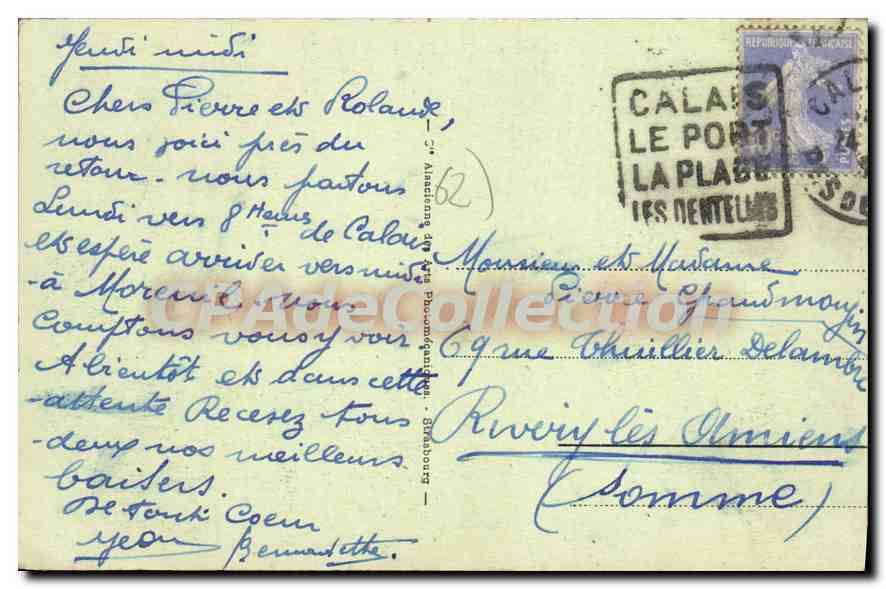 Jeudi midi
Chers Pierre et Rolande,
nous voici près du
retour. nous partons
Lundi vers 8 Heures
de Calais
et espère arriver vers midi
à Moreuil. nous
comptons vous y voir.
A bientôt et dans cette
attente Recevez tous
deux nos meilleurs
baisers.
De tout Coeur
Jean Bernadette.
Cie Alsacienne des Arts Photomécaniques. - Strasbourg
62)
CALAIS
LE PORT
LA PLAGE
LES DENTELLES
REPUBLIQUE FRANÇAISE
POSTES
CALAIS
24
Monsieur et Madame
Pierre Grandmougin
69 rue Thuillier Delambre
Rivery lès Amiens
(Somme)
CPAdeCollection